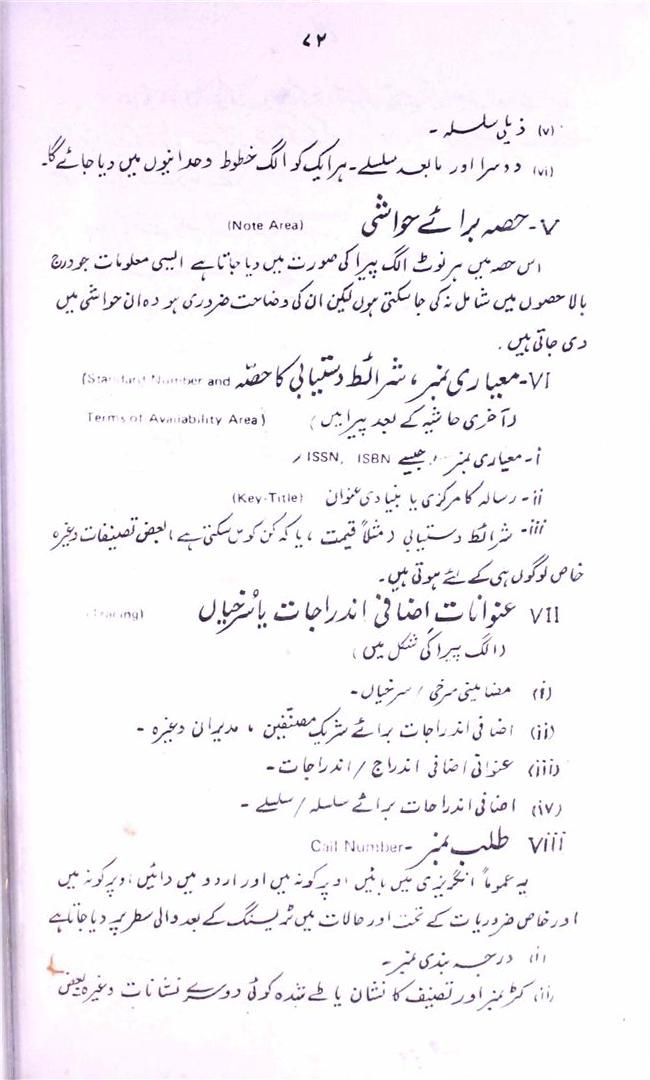 ۷۲
(v) ذیلی سلسلہ ۔
(vi) دوسرا اور مابعد سلسلے۔ ہر ایک کو الگ خطوط وحدانیوں میں دیا جائے گا۔
V- حصہ برائے حواشی (Note Area)
اس حصہ میں ہر نوٹ الگ پیرا کی صورت میں دیا جاتا ہے ایسی معلومات جو درج
بالا حصوں میں شامل نہ کی جا سکتی ہوں لیکن ان کی وضاحت ضروری ہو وہ ان حواشی میں
دی جاتی ہیں ۔
VI- معیاری نمبر، شرائط دستیابی کا حصّہ (Standard Number and
(آخری حاشیہ کے بعد پیرا میں) Terms of Availability Area)
i- معیاری نمبر جیسے ISSN, ISBN
ii- رسالہ کا مرکزی یا بنیادی عنوان (Key-Title)
iii- شرائط دستیابی (مثلاً قیمت ، یا کہ کن کو مل سکتی ہے) بعض تصنیفات وغیرہ
خاص لوگوں ہی کے لئے ہوتی ہیں۔
VII عنوانات اِضافی اندراجات یا سُرخیاں (Tracing)
(الگ پیرا کی شکل میں)
(i) مضامینی سرخی / سرخیاں۔
(ii) اضافی اندراجات برائے شریک مصنّفین ، مدیران وغیرہ ۔
(iii) عنوانی اضافی اندراج / اندراجات۔
(iv) اضافی اندراجات برائے سلسلہ / سلسلے ۔
Viii طلب نمبر Call Number-
یہ عموماً انگریزی میں بائیں اوپر کونہ میں اور اردو میں دائیں اوپر کونہ میں
اور خاص ضروریات کے تحت اور حالات میں ٹریسنگ کے بعد والی سطر پر دیا جاتا ہے
(i) درجہ بندی نمبر۔
(ii) کٹر نمبر اور تصنیف کا نشان یا طے شدہ کوئی دوسرے نشانات وغیرہ بعض